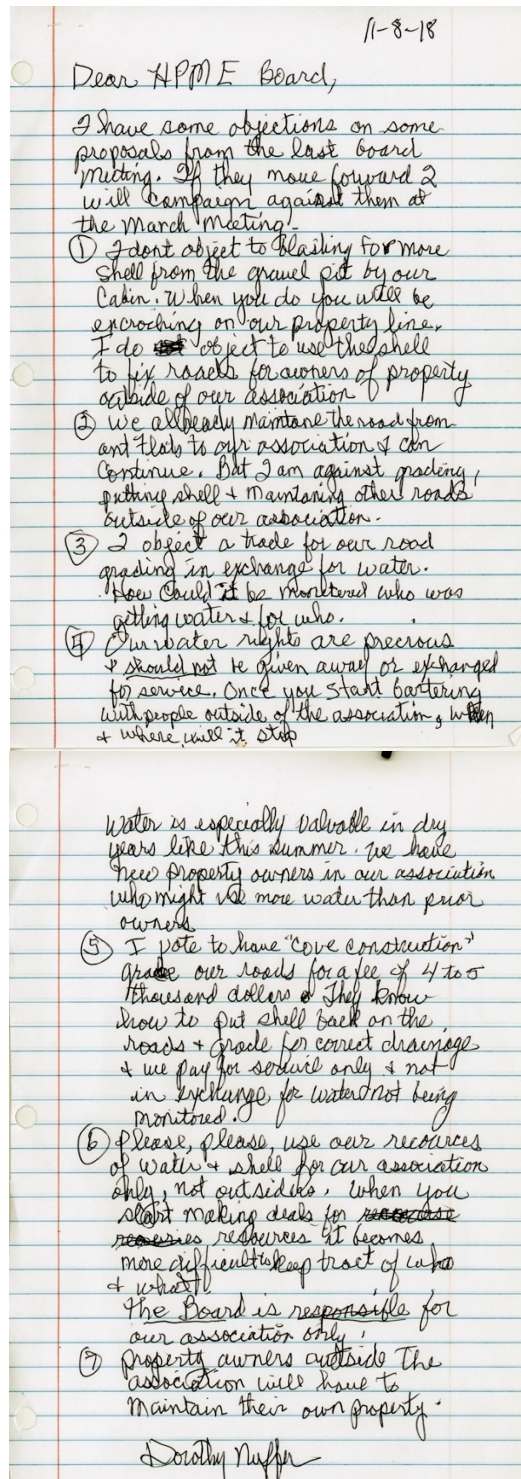 11-8-18
Dear HPME Board,
I have some objections on some
proposals from the last board
meeting. If they move forward I
will campaign against them at
the March meeting.
① I dont object to blasting for more
shell from the gravel pit by our
Cabin. When you do you will be
encroching on our property line.
I do object to use the shell
to fix roads for owners of property
outside of our association
② We allready maintane the road from
ant flats to our association & can
Continue. But I am against grading,
putting shell & maintaning other roads
outside of our association.
③ I object a trade for our road
grading in exchange for water.
How could it be monitered who was
getting water & for who.
④ Our water rights are precious
& should not be given away or exchanged
for service. Once you start bartering
with people outside of the association, when
& where will it stop
Water is especially valuable in dry
years like this summer. We have
new property owners in our association
who might use more water than prior
owners
⑤ I vote to have "Cove Construction"
grade our roads for a fee of 4 to 5
thousand dollars. They know
how to put shell back on the
roads & grade for correct drainage
& we pay for service only & not
in exchange for water not being
monitored.
⑥ Please, please, use our recources
of water & shell for our association
only, not outsiders. When you
start making deals for
resources it becomes
more difficult to keep tract of who
& what!
The Board is responsible for
our association only!
⑦ Property owners outside The
association will have to
Maintain their own property.
Dorothy Nuffer